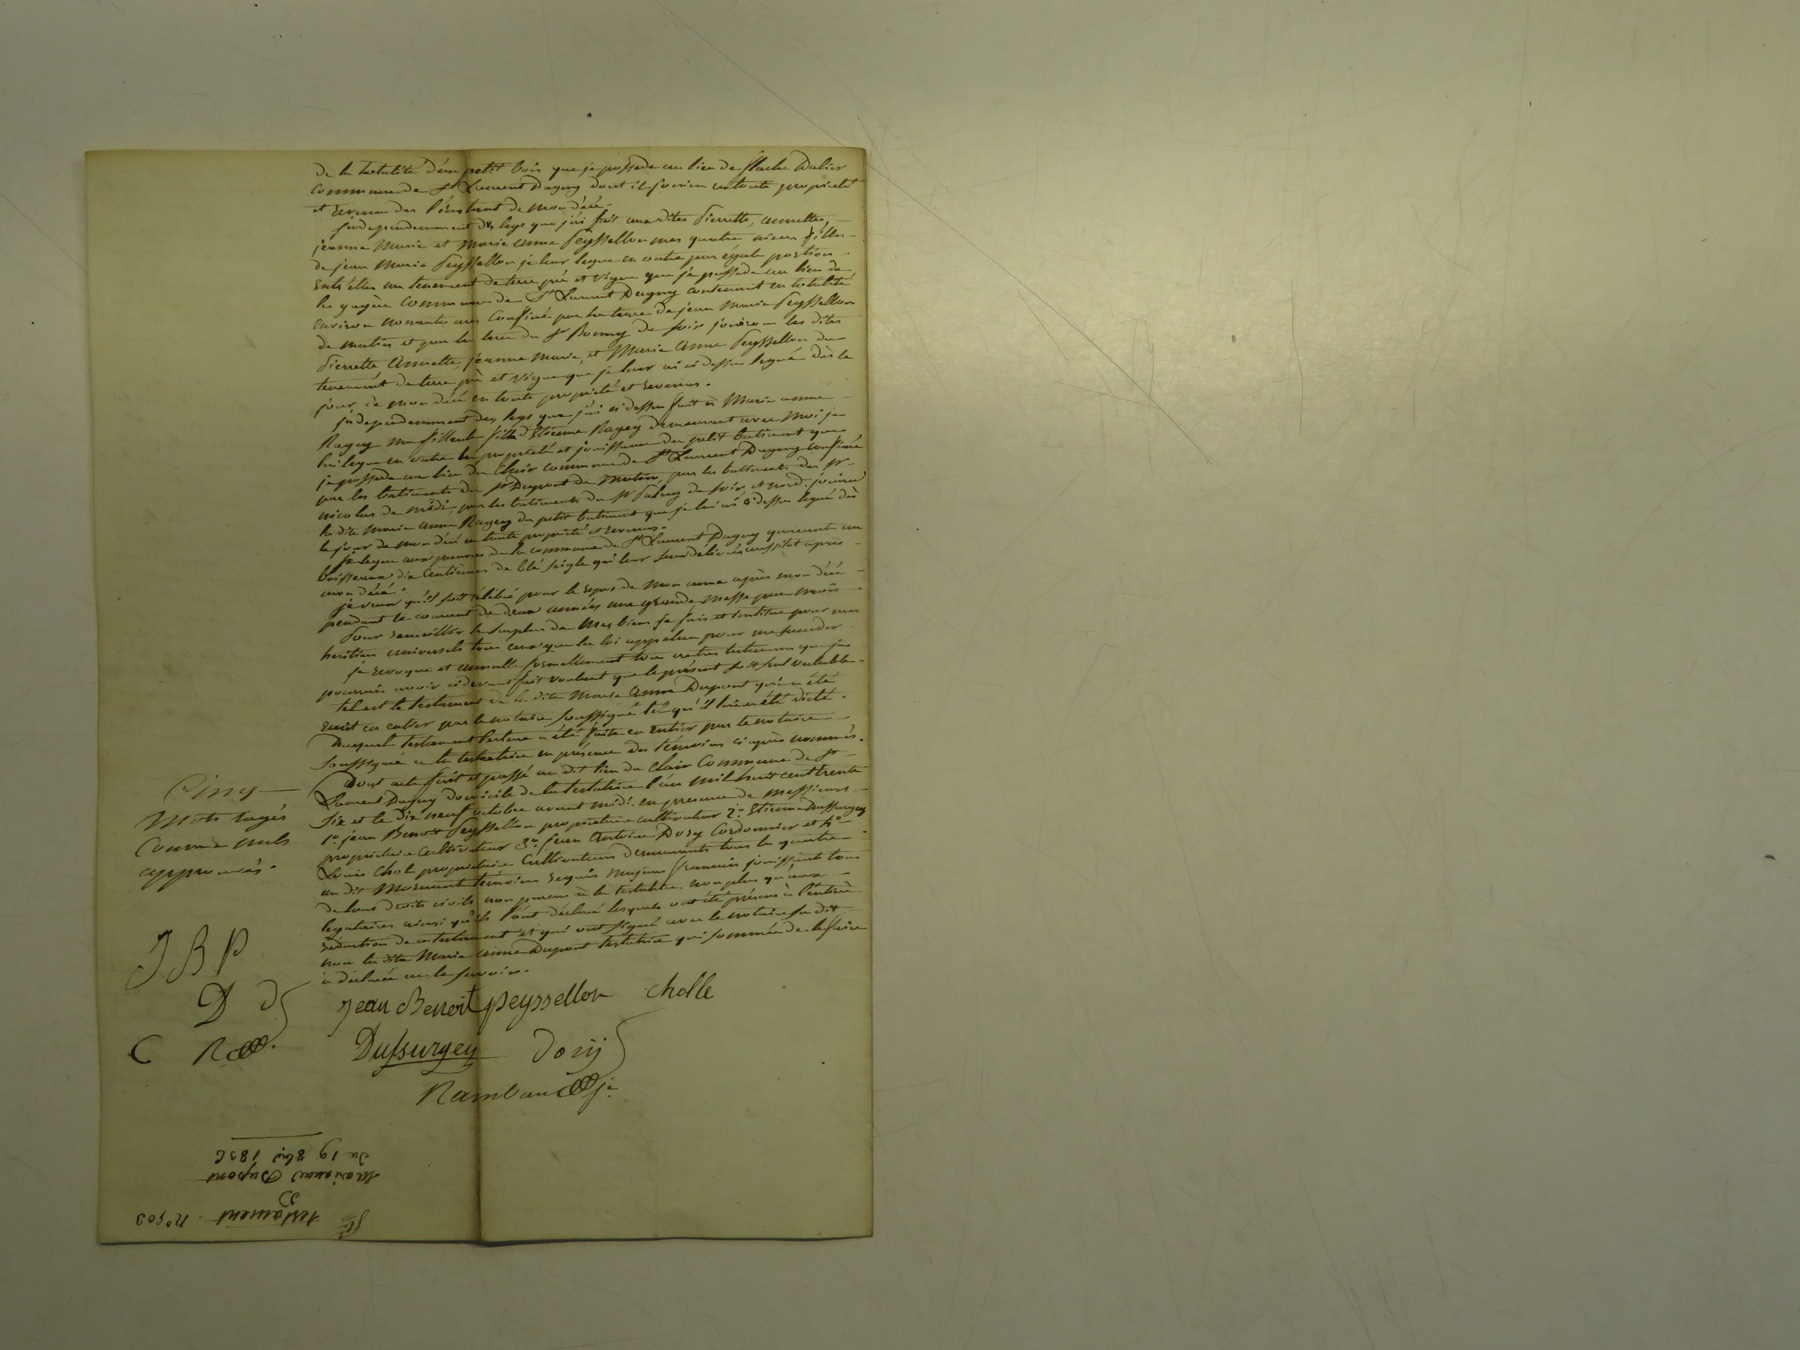 de la totalité d'un petit bois que je possede au lieu de
commune de St Laurent Dagny dont il jouira en toute propriété
et revenu dès l'instant de mon décé.
Independamment des legs que j'ai fait aux dites Pierrette, annette,
jeanne Marie et Marie anne Peyssellon mes quatre nieces filles
de jean Marie Peyssellon je leur legue en outre par égale portion
entr'elles un tenement de terre pré et vigne que je possede au lieu de
commune de St Laurent Dagny contenant en totalité
environ nonante ares confiné par la terre de jean Marie Peyssellon
de matin et par la terre du Sr de soir jouiron les dites
Pierrette Annette, jeanne Marie, et Marie Anne Peyssellon du
tenement de terre pré et vigne que je leur ai ci dessu legué dès le
jour de mon décé en toute propriété et revenus.
independamment des legs que j'ai ci dessu fait à Marie anne
Ragey ma filleule fille d'Etienne Ragey demeurant avec moi je
lui legue en outre la propriété et jouissance du petit batiment que
je possede au lieu du Clair commune de St Laurent Dagny confiné
par les batiments du Sr Dupont de matin, par les batiments du Sr
nicolas de midi, par les batiments du Sr de soir et nord. jouira
la dite Marie Anne Ragey du petit batiment que je lui ai ci dessu legué dès
le jour de mon décé en toute propriété et revenus.
Je legue aux pauvres de la commune de St Laurent Dagny
boisseaux dix centiemes de blé seigle qui leur seront délivrés aussitot après
mon décé.
je veux qu'il soit célébré pour le repos de mon ame après mon décé
pendant le courant de deux années une grande messe par mois
Pour recueillir le surplus de mes biens je fais et institue pour mes
heritiers universels tous ceux que la loi appelera pour me succeder
je revoque et annulle formellement tous autres testamens que je
pourrais avoir ci devant fait voulant que le présent soit seul valable
tel est le testament de la dite Marie Anne Dupont qui a été
écrit en entier par le notaire soussigné tel qu'il lui a été dicté.
Duquel testament lecture a été faite en entier par le notaire
soussigné à la testatrice en présence des témoins ci après nommés.
Dont acte fait et passé au dit lieu du Clair Commune de St
Laurent Dagny domicile de la testatrice l'an mil huit cent trente
six et le dix neuf octobre avant midi. en presence de messieurs
1° jean Benoit Peyssellon propriétaire cultivateur 2° Etienne Dussurgey
propriétaire cultivateur 3° jean Antoine Dozy Cordonnier et 4°
Louis Chol propriétaire Cultivateur demeurants tous les quatre
au dit témoins requis majeurs français jouissants tous
de leurs droits civils non parens à la testatrice non plus qu'aux
legataires ainsi qu'ils l'ont déclaré lesquels ont été présens à l'entière
rédaction de ce testament et qui ont signé avec le notaire
non la dite Marie Anne Dupont testatrice qui sommée de le faire
a déclaré ne le savoir.
Cinq
Mots rayés
Comme nuls
approuvés.
J B P
D D
C R
Jean Benoit peyssellon cholle
Dussurgey dozij
Rambaud je
n° 503
testament
Marianne Dupont
du 19 8bre 1836